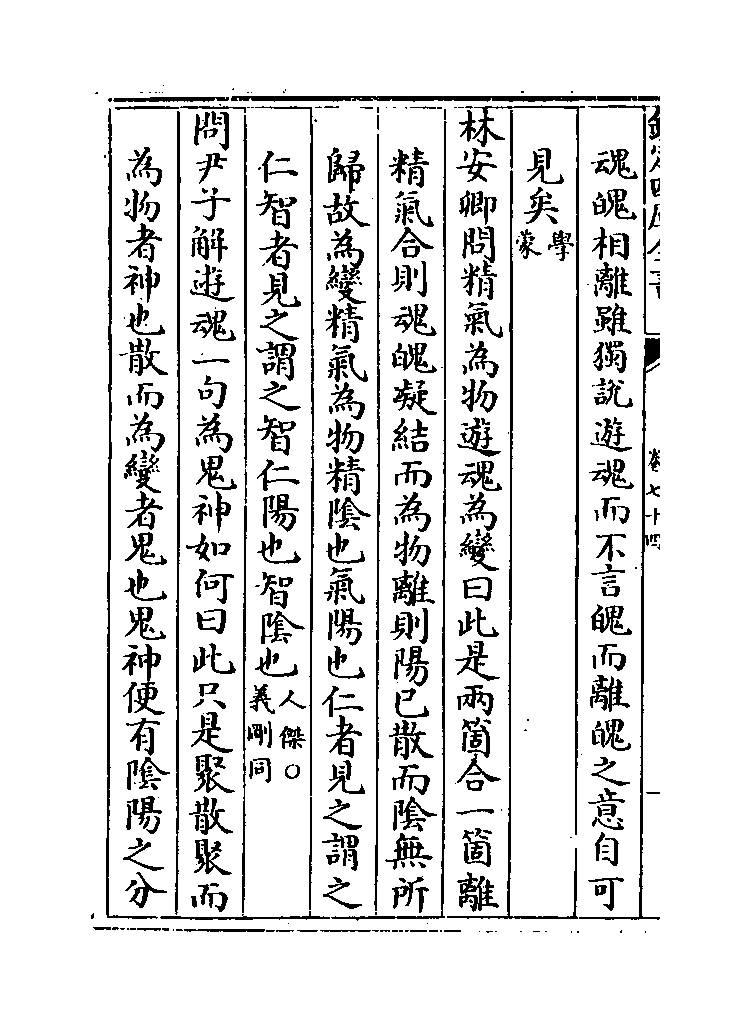 欽定四庫全書
卷七十四
魂魄相離雖獨說遊魂而不言魄而離魄之意自可
見矣學蒙
林安卿問精氣為物遊魂為變曰此是兩箇合一箇離
精氣合則魂魄凝結而為物離則陽已散而陰無所
歸故為變精氣為物精陰也氣陽也仁者見之謂之
仁智者見之謂之智仁陽也智陰也人傑○義剛同
問尹子解遊魂一句為鬼神如何曰此只是聚散聚而
為物者神也散而為變者鬼也鬼神便有陰陽之分